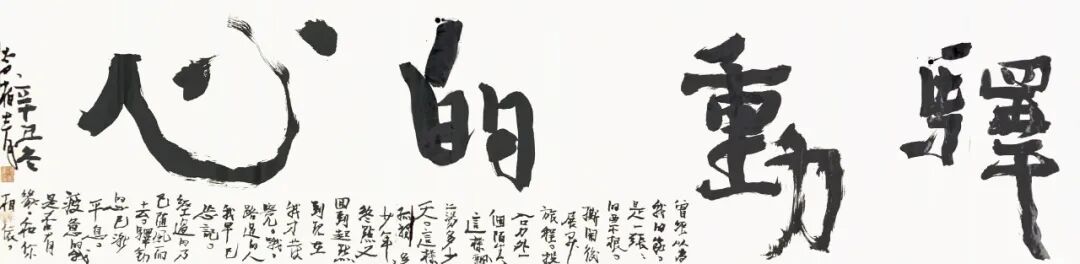 驛動的心
曾經以為
我的家
是一張張
的票根
撕開後
展開
旅程。投
入另外一
個陌生
這樣飄
蕩多少
天。這樣
孤獨多
少年。
終點又
回到起點
到現在
我才發
覺。哦。
路過的人
我早已
忘記。
經過的事
已隨風而
去。驛動
的心已漸
平息。
疲憊的我
是否有
緣。和你
相依。
辛丑冬